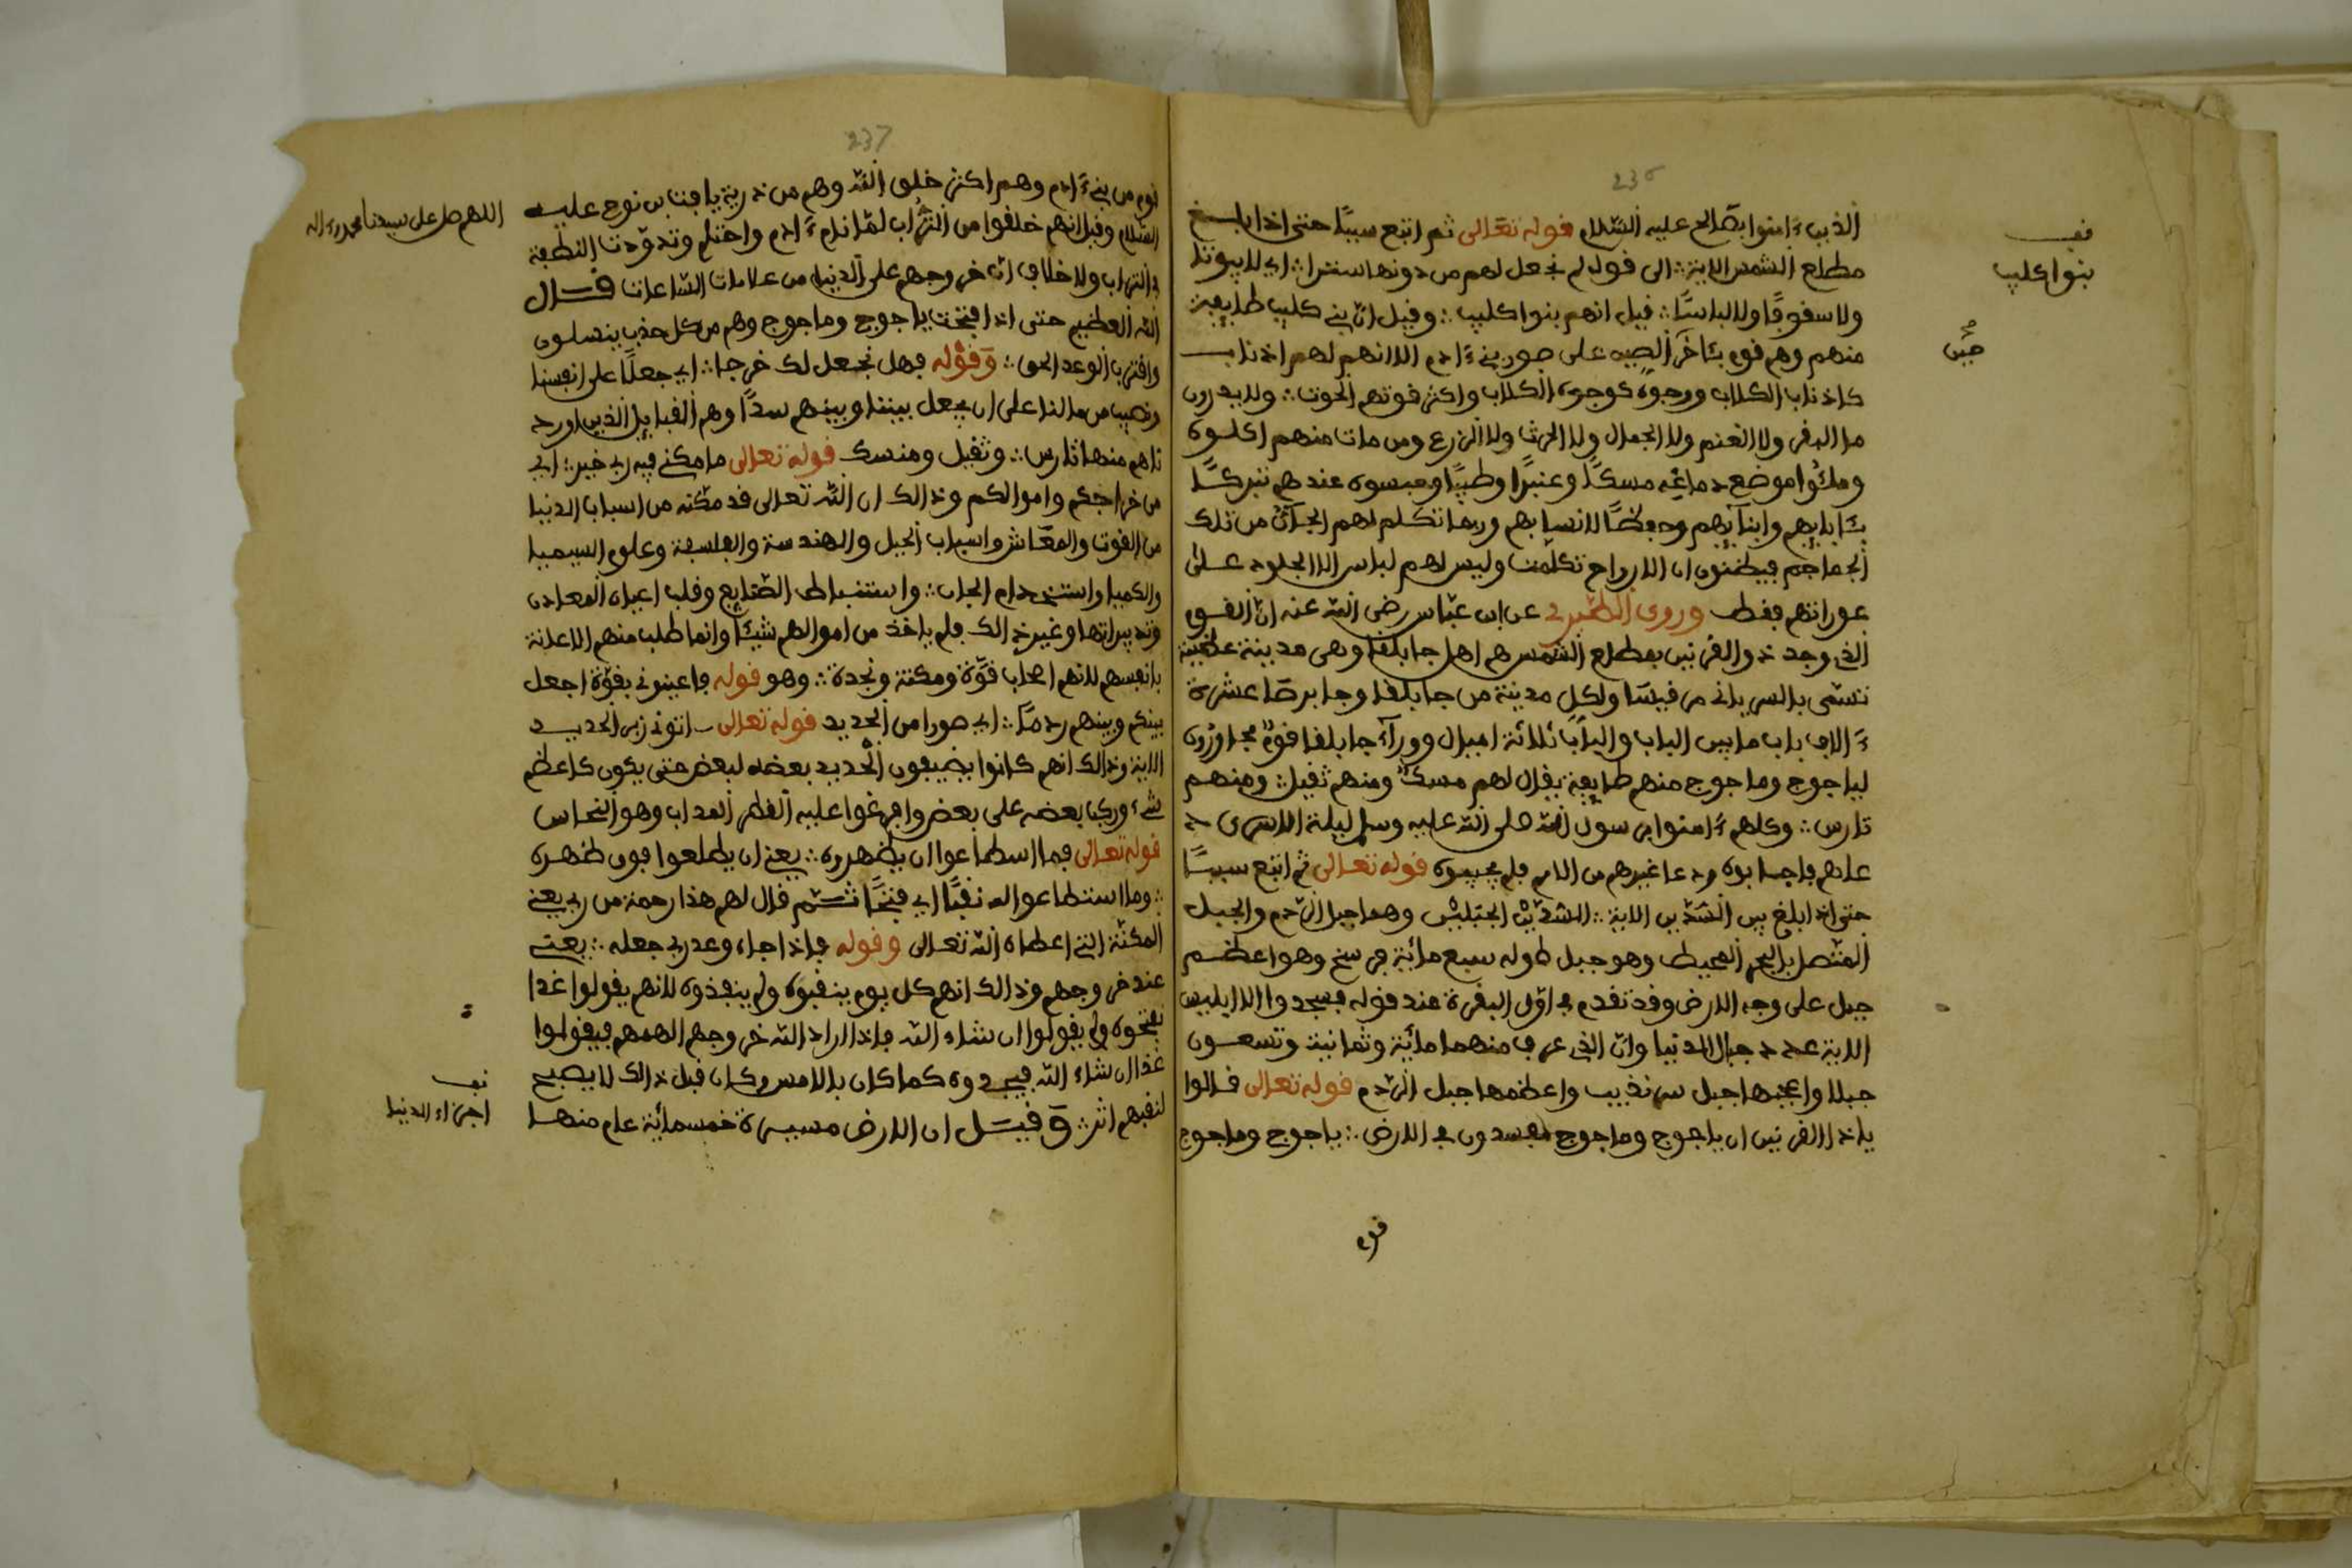 236
الذين ءامنوا بصالح عليه السلام قوله تعالى ثم اتبع سببًا حتى اذا بلغ
مطلع الشمس الاية ∴ الى قوله لم نجعل لهم من دونها سترا ∴ اي لا بيوتا
ولا سقوفًا ولا لباسًا ∴ قيل انهم بنوا كليب ∴ وقيل ان بني كليب طايفة
منهم وهم قوم بئاخر الصين على صور بني ءادم الا انهم لهم اذناب
كاذناب الكلاب ووجوه كوجوه الكلاب واكثر قوتهم الحوت ∴ ولا يدرون
ما البقر ولا الغنم ولا الجمال ولا الحرث ولا الزرع ومن مات منهم اكلوه
وملئوا موضع دماغه مسكًا وعنبرًا وطيبًا وحبسوه عندهم تبركًا
بئابايهم وابنآيهم وحفظًا لانسابهم وربما تكلم لهم الجآن من تلك
الجماجم فيظنون ان الارواح تكلمت وليس لهم لباس الا الجلود على
عوراتهم فقط وروى الطبري عن ابن عباس رضي الله عنه ان القوم
الذي وجد ذو القرنين بمطلع الشمس هم اهل جابلقا وهى مدينة عظيمة
تسمى بالسريانى مرقيسا ولكل مدينة من جابلقا وجابرصا عشرة
ءالاف باب ما بين الباب والباب ثلاثة اميال ووراء جابلقا قوم مجاوزون
لياجوج وماجوج منهم طايفة يقال لهم مسك ومنهم ثقيل ∴ ومنهم
تارس ∴ وكلهم ءامنوا برسول الله صلى الله عليه وسلم ليلة الاسرى د
عاهم فاجابوه ودعا غيرهم من الامم فلم يجيبوه قوله تعالى ثم اتبع سببًا
حتى اذا بلغ بين السدين الاية ∴ السدين الجبلين وهما جبل الردم والجبل
المتصل بالبحر المحيط وهو جبل طوله سبع مائة فرسخ وهو اعظم
جبل على وجه الارض وقد تقدم في اول البقرة عند قوله فسجدوا الا ابليس
الاية عدد جبال الدنيا وان الذي عرف منهما مائة وثمانية وتسعون
جبلا واعجبها جبل سرنديب واعظمها جبل الردم قوله تعالى قالوا
ياذا القرنين ان ياجوج وماجوج مفسدون في الارض ∴ ياجوج وماجوج
قوم
قف
بنوا كليب
237
قوم من بني ءادم وهم اكثر خلق الله وهم من ذرية يافث بن نوح عليه
السلام وقيل انهم خلقوا من التراب لما نام ءادم واحتلم وتدودت النطفة
في التراب ولا خلاف ان خروجهم على الدنيا من علامات الساعات قال
الله العظيم حتى اذا فتحت ياجوج وماجوج وهم من كل حدب ينسلون
واقترب الوعد الحق ∴ وقوله فهل نجعل لك خرجا ∴ اي جعلًا على انفسنا
ونصيب من مالنا على ان يجعل بيننا وبينهم سدًا وهم القبايل الذين اورد
ناهم منها تارس ∴ وثقيل ومنسك قوله تعالى ما مكني فيه ربي خير ∴ اي
من خراجكم واموالكم وذالك ان الله تعالى قد مكنه من اسباب الدنيا
من القوت والمعاش واسباب الحيل والهندسة والفلسفة وعلوم السيميا
والكميا واستخدام الجان ∴ واستنباط الصنايع وقلب اعيان المعادن
وتدبيراتها وغير ذالك فلم ياخذ من اموالهم شيئا وانما طلب منهم الاعانة
بانفسهم لانهم اصحاب قوة ومكنة ونجدة ∴ وهو قوله فاعينوني بقوة اجعل
بينكم وبينهم ردمًا ∴ اي صورا من الحديد قوله تعالى اتوني زبر الحديد
الاية وذالك انهم كانوا يضيفون الحديد بعضه لبعض حتى يكون كاعظم
شيء وركب بعضه على بعض وافرغوا عليه القطر المذاب وهو النحاس
قوله تعالى فما اسطاعوا ان يظهروه ∴ يعني ان يطلعوا فوق ظهره
∴ وما استطاعوا له نقبًا اي فتحًا ثم قال لهم هذا رحمة من ربي يعني
المكنة التي اعطاه الله تعالى وقوله فاذا جاء وعد ربي جعله ∴ يعنى
عند خروجهم وذالك انهم كل يوم ينقبوه ولم ينفذوه لانهم يقولوا غدا
نفتحوه ولم يقولوا ان شاء الله فاذا اراد الله خروجهم الهمهم فيقولوا
غدا ان شاء الله فيجدوه كما كان بالامس وكان قبل ذالك لا يصبح
لنقبهم اثر ∴ وقيل ان الارض مسيرة خمسمائة عام منها
اللهم صل على سيدنا محمد وءاله
قف
اجزاء الدنيا